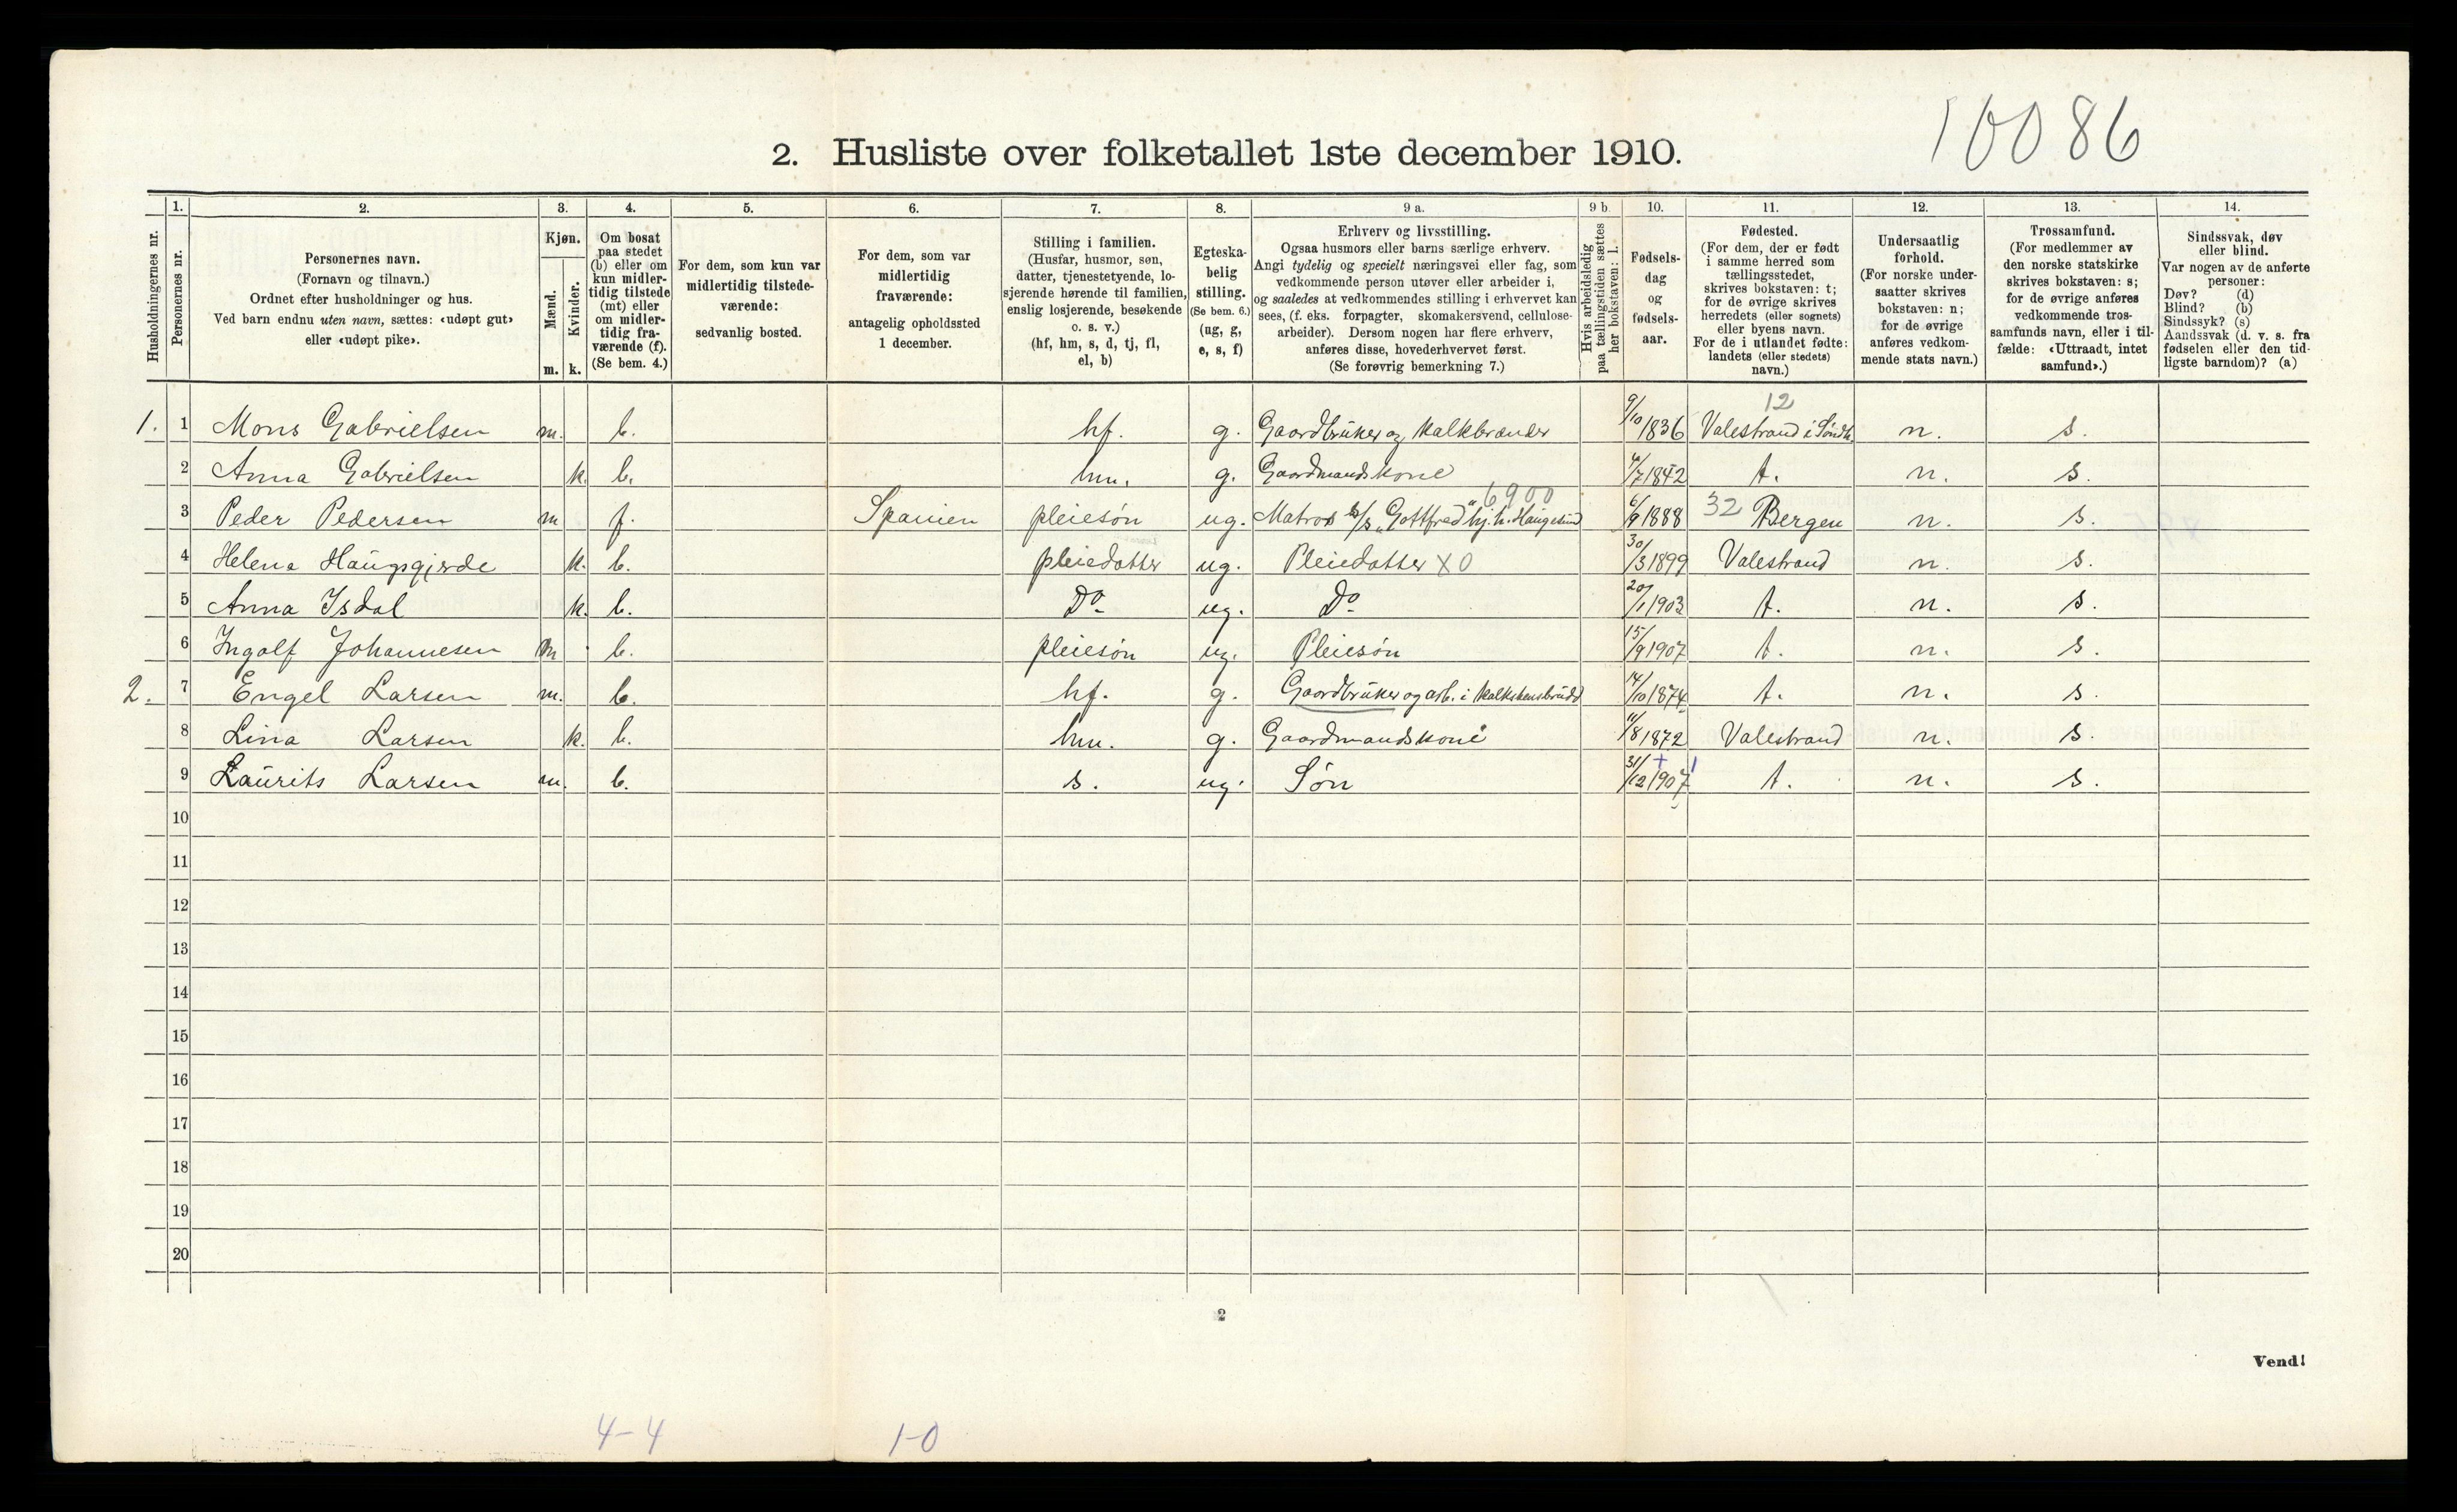 10086
2. Husliste over folketallet 1ste december 1910.
Husholdningernes nr.
1.
Personernes nr.
2.
Personernes navn.
(Fornavn og tilnavn.)
Ordnet efter husholdninger og hus.
Ved barn endnu uten navn, sættes: «udøpt gut»
eller «udøpt pike».
3.
Kjøn.
Mænd.
m.
Kvinder.
k.
4.
Om bosat
paa stedet
(b) eller om
kun midler-
tidig tilstede
(mt) eller
om midler-
tidig fra-
værende (f).
(Se bem. 4.)
5.
For dem, som kun var
midlertidig tilstede-
værende:
sedvanlig bosted.
6.
For dem, som var
midlertidig
fraværende:
antagelig opholdssted
1 december.
7.
Stilling i familien.
(Husfar, husmor, søn,
datter, tjenestetyende, lo-
sjerende hørende til familien,
enslig losjerende, besøkende
o. s. v.)
(hf, hm, s, d, tj, fl,
el, b)
8.
Egteska-
belig
stilling.
(Se bem. 6.)
(ug, g,
e, s, f)
9 a.
Erhverv og livsstilling.
Ogsaa husmors eller barns særlige erhverv.
Angi tydelig og specielt næringsvei eller fag, som
vedkommende person utøver eller arbeider i,
og saaledes at vedkommendes stilling i erhvervet kan
sees, (f. eks. forpagter, skomakersvend, cellulose-
arbeider). Dersom nogen har flere erhverv,
anføres disse, hovederhvervet først.
(Se forøvrig bemerkning 7.)
9 b.
Hvis arbeidsledig
paa tællingstiden sættes
her bokstaven: l.
10.
Fødsels-
dag
og
fødsels-
aar.
11.
Fødested.
(For dem, der er født
i samme herred som
tællingsstedet,
skrives bokstaven: t;
for de øvrige skrives
herredets (eller sognets)
eller byens navn.
For de i utlandet fødte:
landets (eller stedets)
navn.)
12.
Undersaatlig
forhold.
(For norske under-
saatter skrives
bokstaven: n;
for de øvrige
anføres vedkom-
mende stats navn.)
13.
Trossamfund.
(For medlemmer av
den norske statskirke
skrives bokstaven: s;
for de øvrige anføres
vedkommende tros-
samfunds navn, eller i til-
fælde: «Uttraadt, intet
samfund».)
14.
Sindssvak, døv
eller blind.
Var nogen av de anførte
personer:
Døv? (d)
Blind? (b)
Sindssyk? (s)
Aandssvak (d. v. s. fra
fødselen eller den tid-
ligste barndom)? (a)
12
1. 1 Mons Gabrielsen m. b. hf. g. Gaardbruker og Kalkbrænder 9/10 1836 Valestrand i Søndh. n. s.
2 Anna Gabrielsen k. b. hm. g. Gaardmandskone 4/7 1842 t. n. s.
6900
3 Peder Pedersen m f. Spanien pleiesøn ug. Matros s/s „Gottfred" hj.h. Haugesund 6/9 1888 32 Bergen n. s.
4 Helena Haugsgjerde k. b. pleiedatter ug. Pleiedatter X0 30/3 1899 Valestrand n. s.
5 Anna Isdal k. b. Do ug. Do 20/1 1903 t. n. s.
6 Ingolf Johannesen m b. pleiesøn ug. Pleiesøn 15/9 1907 t. n. s.
2. 7 Engel Larsen m. b. hf. g. Gaardbruker og arb. i Kalkstensbrudd 14/10 1874 t. n. s.
8 Lina Larsen k. b. hm. g. Gaardmandskone 11/8 1872 Valestrand n. s.
9 Laurits Larsen m. b. s. ug. Søn 31/12 1907 t. n. s.
10
11
12
13
14
15
16
17
18
19
20
2
Vend!
4-4
1-0